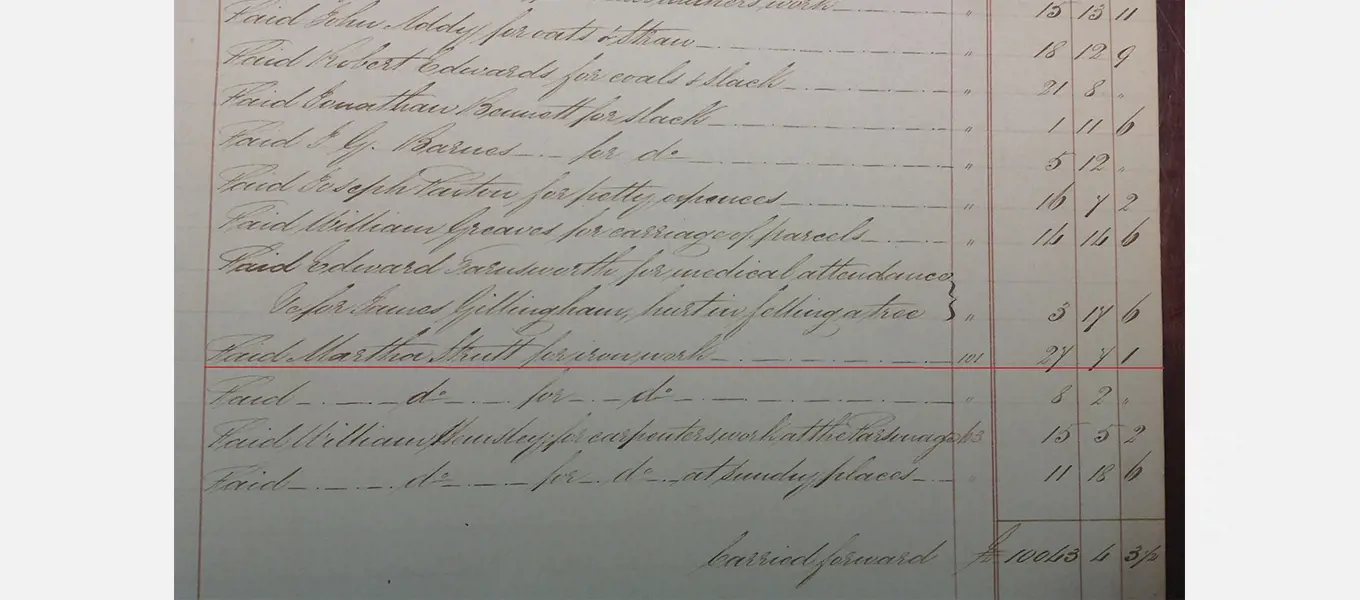 work " 15 13 11
Paid John Addy, for oats & straw " 18 12 9
Paid Robert Edwards for coals & slack " 21 8 "
Paid Jonathan Bennett for slack " 1 11 6
Paid G. Barnes for do " 5 12 "
Paid Joseph Paxton, for petty expences " 16 7 2
Paid William Greaves for carriage of parcels " 14 14 6
Paid Edward Farnsworth for medical attendance
&c for James Gillingham, hurt in felling a tree } " 3 17 6
Paid Martha Strutt for iron work 101 27 7 1
Paid do for do " 8 2 "
Paid William Hemsley, for carpenters work at the Parsonage 63 15 5 2
Paid do for do at sundry places " 11 18 6
Carried forward £ 10043 4 3½